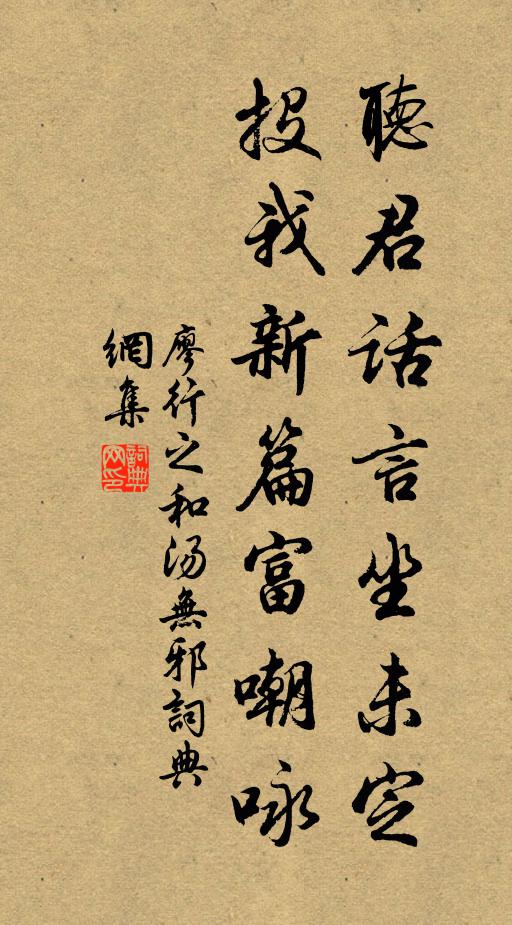 聽君話言坐未定
投我新篇富嘲咏
廖行之和汤無邪詞典
網集
詞典
网印